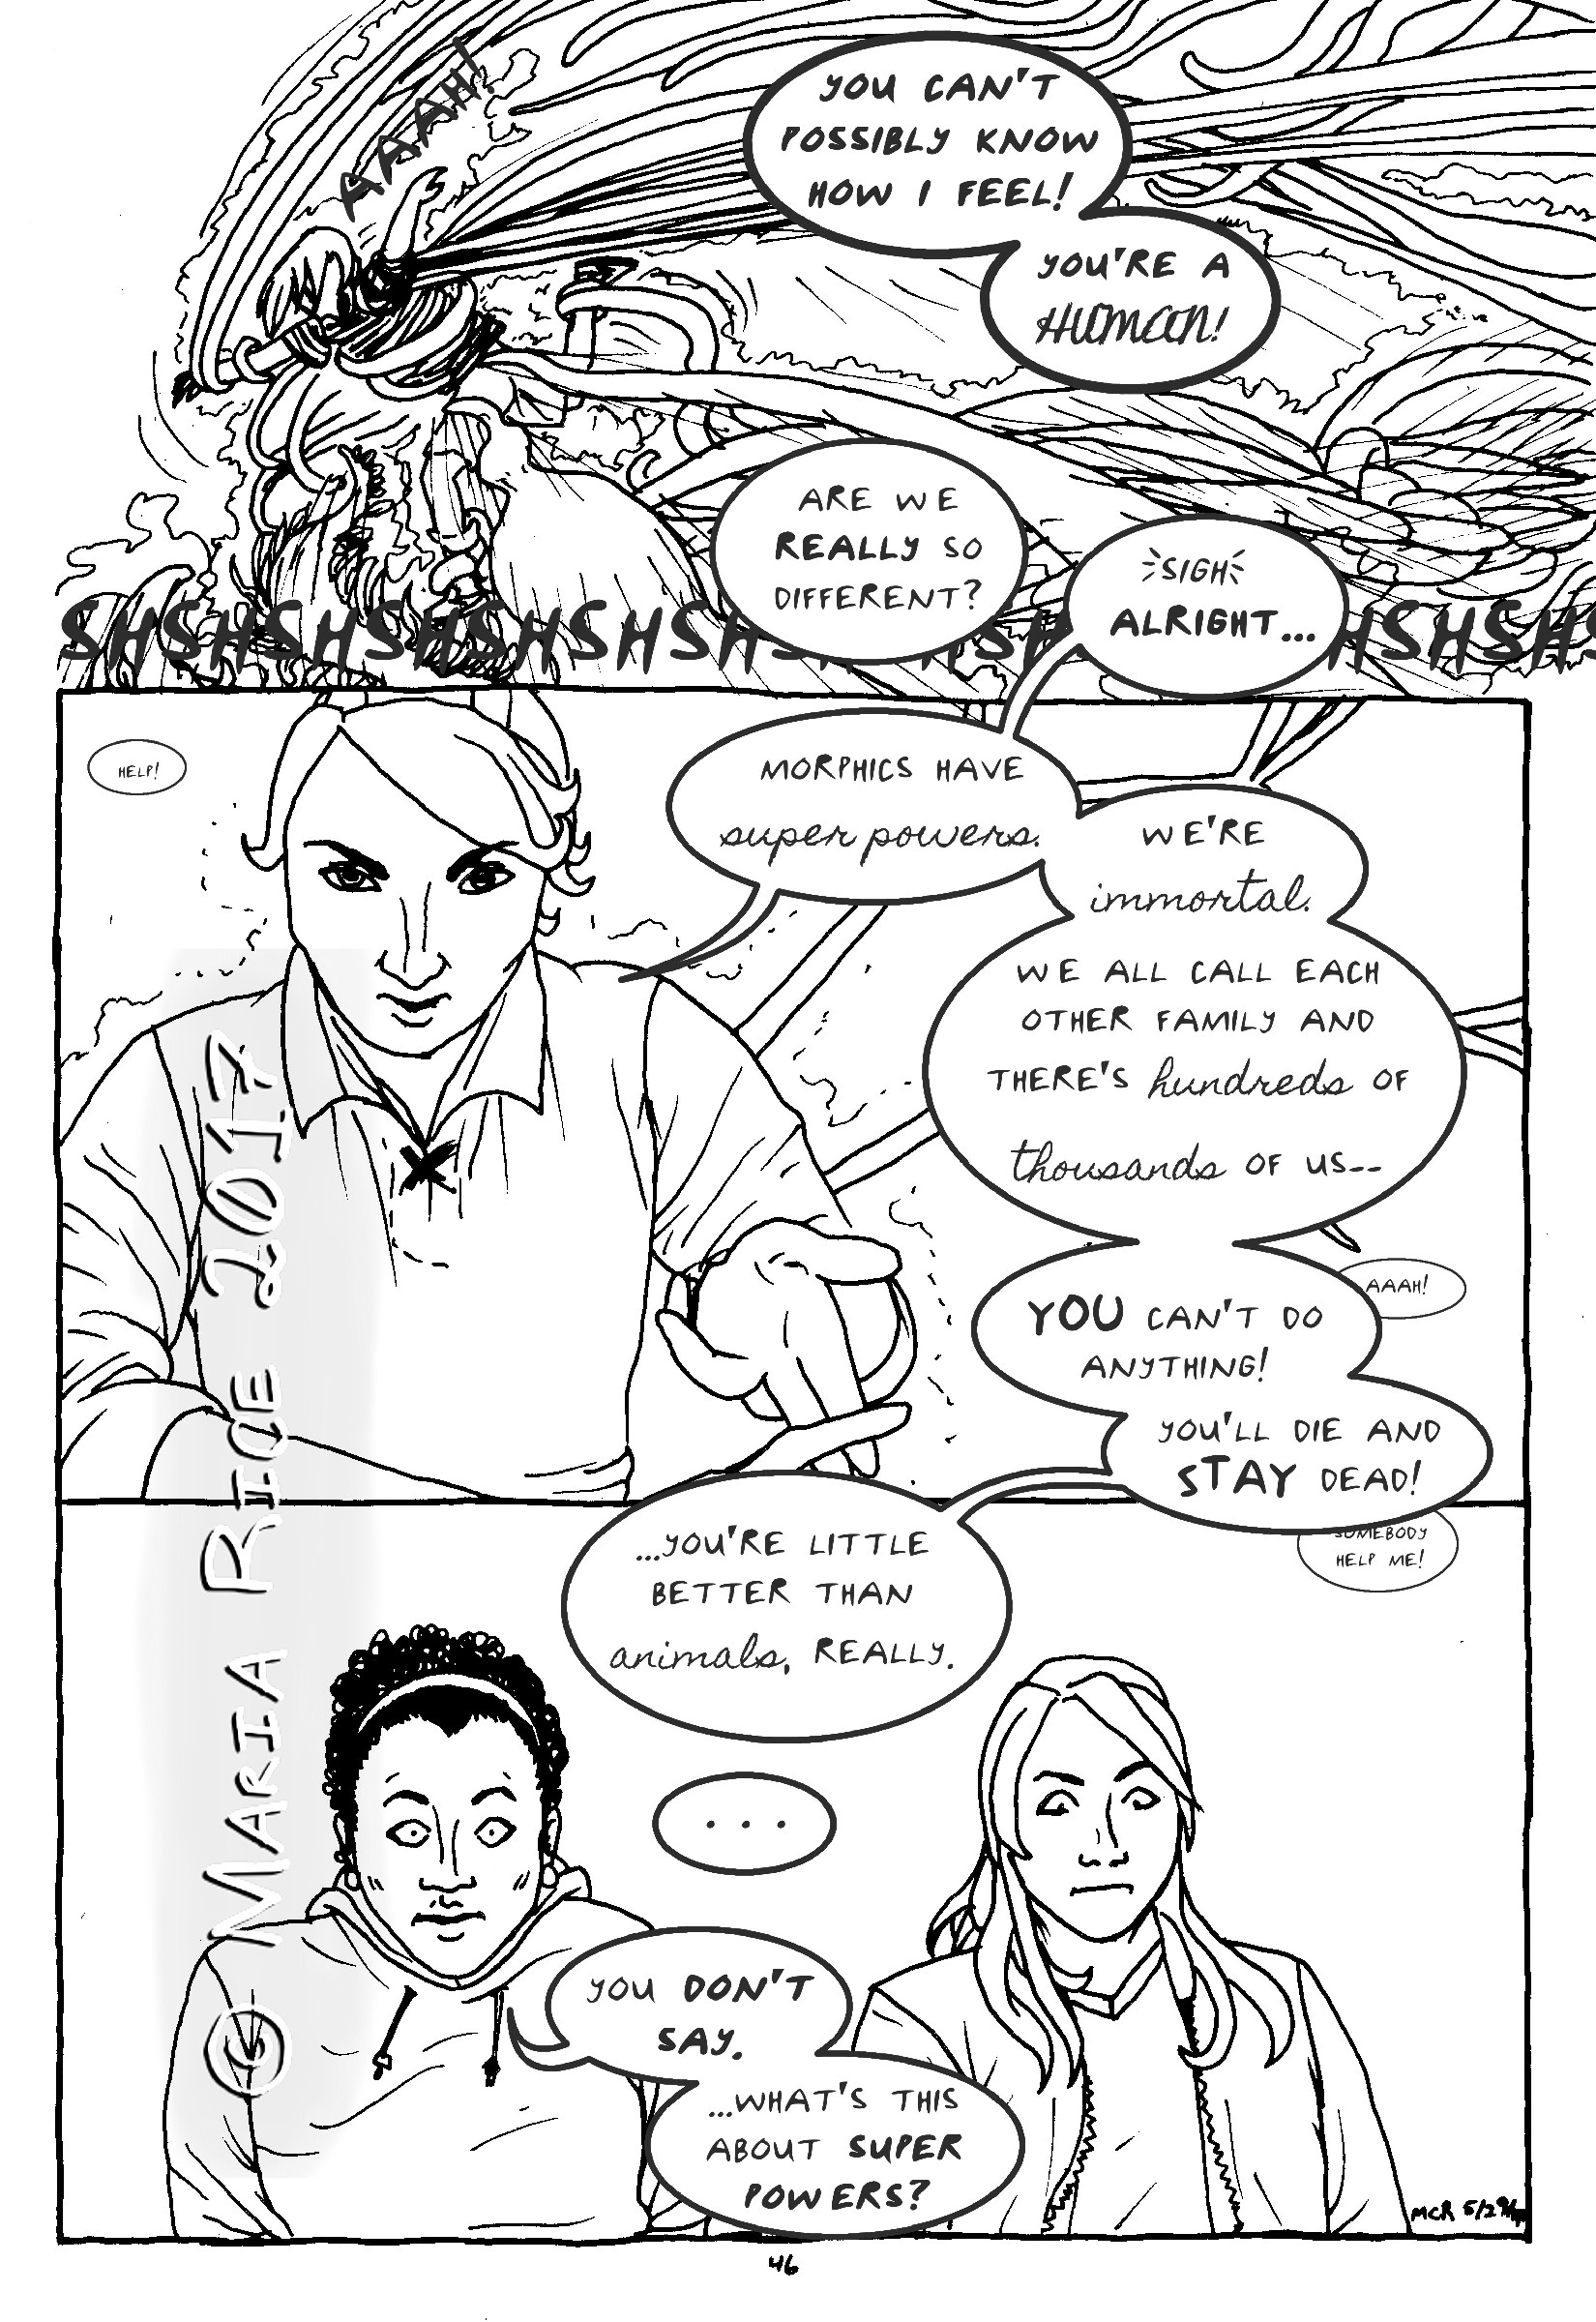 AAAH!
YOU CAN'T
POSSIBLY KNOW
HOW I FEEL!
YOU'RE A
HUMAN!
ARE WE
REALLY SO
DIFFERENT?
SIGH
ALRIGHT...
SHSHSHSHSHSHSHSHSHSHSHSHSHSHS
HELP!
MORPHICS HAVE
super powers.
WE'RE
immortal.
WE ALL CALL EACH
OTHER FAMILY AND
THERE'S hundreds OF
thousands OF US--
AAAH!
YOU CAN'T DO
ANYTHING!
YOU'LL DIE AND
STAY DEAD!
SOMEBODY
HELP ME!
...YOU'RE LITTLE
BETTER THAN
animals, REALLY.
. . .
YOU DON'T
SAY.
...WHAT'S THIS
ABOUT SUPER
POWERS?
© MARIA RICE 2017
MCR
46